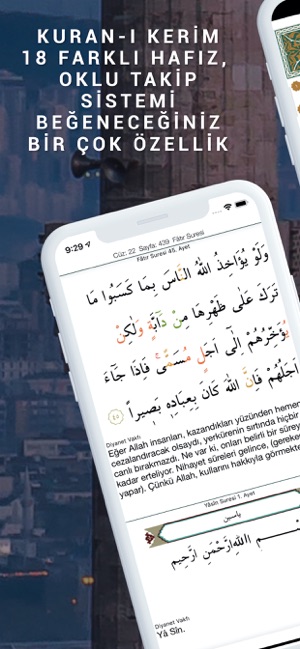 KURAN-I KERİM
18 FARKLI HAFIZ,
OKLU TAKİP
SİSTEMİ
BEĞENECEĞİNİZ
BİR ÇOK ÖZELLİK
9:29
Cüz: 22 Sayfa: 439 Fâtır Suresi
Fâtır Suresi 45. Ayet
وَلَوْ يُؤَاخِذُ اللّٰهُ النَّاسَ بِمَا كَسَبُوا مَا
تَرَكَ عَلٰى ظَهْرِهَا مِنْ دَٓابَّةٍ وَلٰكِنْ
يُؤَخِّرُهُمْ اِلٰٓى اَجَلٍ مُسَمًّىۚ فَاِذَا جَٓاءَ
اَجَلُهُمْ فَاِنَّ اللّٰهَ كَانَ بِعِبَادِه۪ بَصٖيرًا ﴿٤٥﴾
Diyanet Vakfı
Eğer Allah insanları, kazandıkları yüzünden hemen
cezalandıracak olsaydı, yerkürenin sırtında hiçbir
canlı bırakmazdı. Ne var ki, onları belirli bir süreye
kadar erteliyor. Nihayet süreleri gelince, (gerekeni
yapar). Çünkü Allah, kullarını hakkıyla görmektedir
Yâsîn Suresi 1. Ayet
ياسين
اللّٰهِ الرَّحْمٰنِ الرَّحٖيمِ
Diyanet Vakfı
Yâ Sîn.